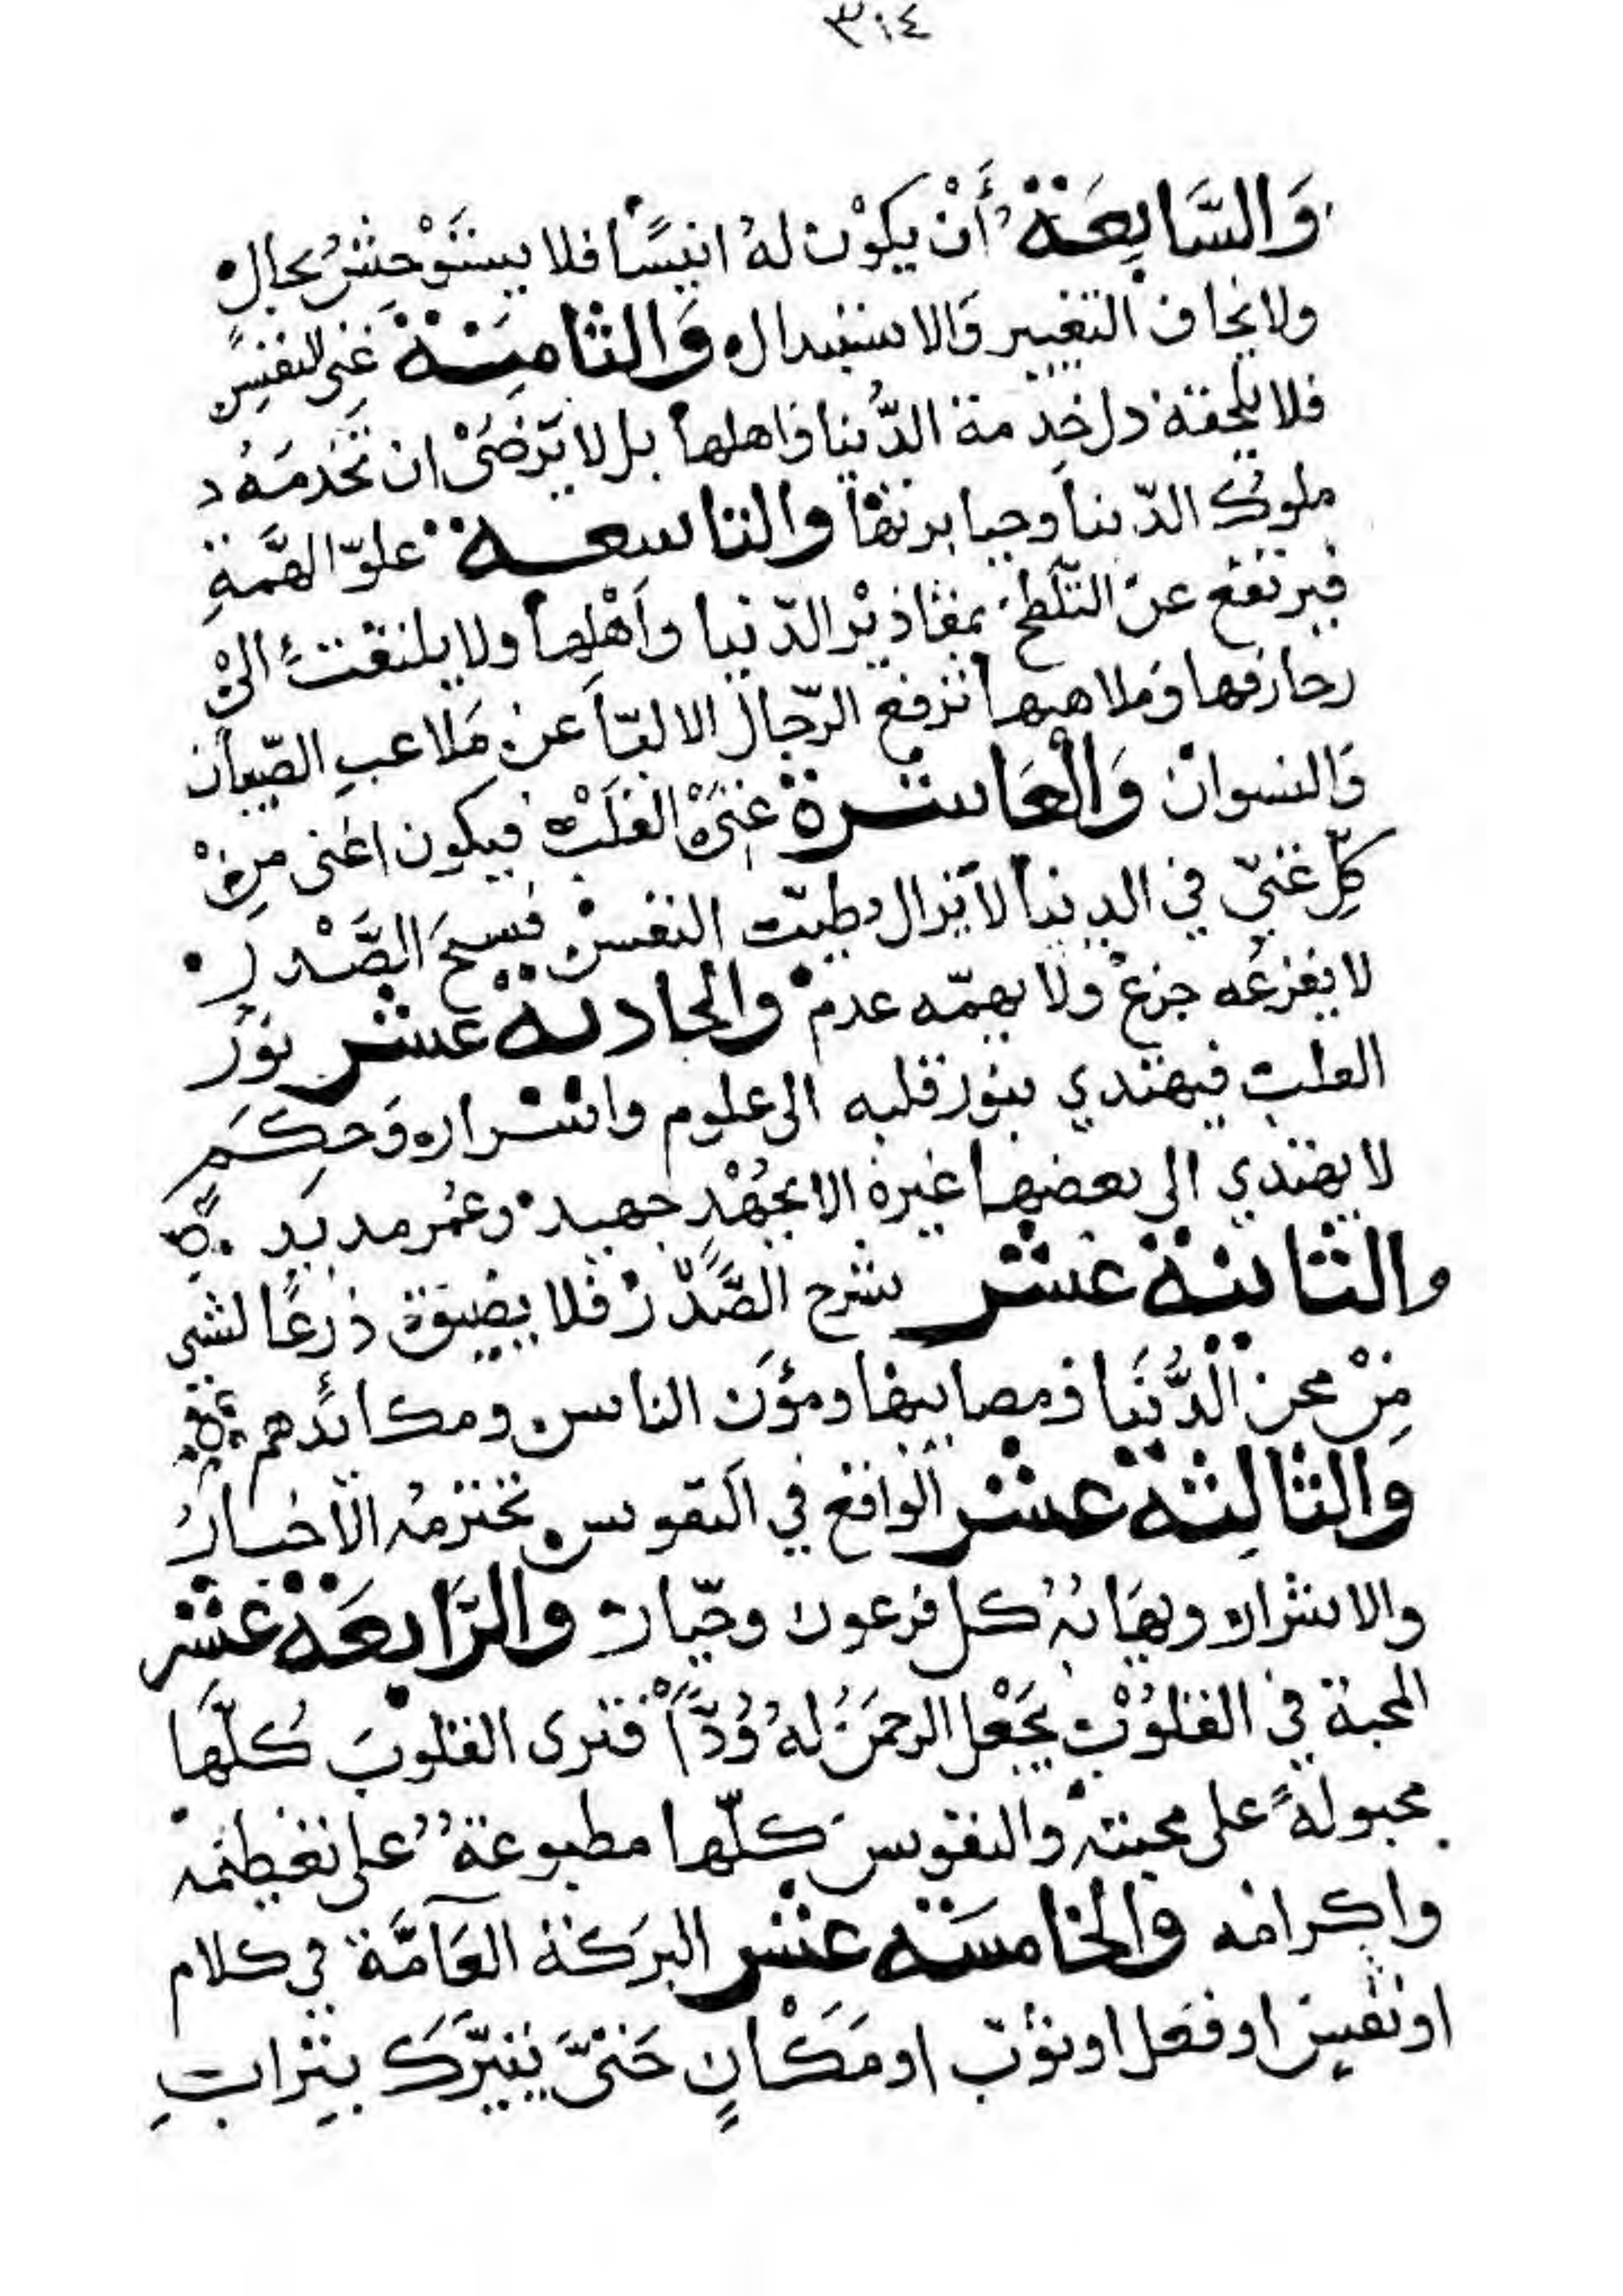 ٣١٤
وَالسَّابِعَة أَنْ يكوْن لهُ انيسًا فلا يستَوْحشُ بحال
ولا يخاف التغيير وَالاستبدال وَالثامِنَة غِنى النفسِ
فلا يلحقه ذل خِدمة الدُّنيا واهلها بل لا يَرْضَىْ ان تَخدمَهُ
ملوك الدّنيا وجبابرتها والتاسعة علوّ الهمَّةِ
فيرتفع عنْ التَّلَطخ بمقاذيْر الدّنيا وأهْلِها ولا يلتفت الىْ
زخارفها وَملاهيها ترفع الرّجال الالبّاَ عن مَلاعبِ الصّبيان
وَالنسوانْ وَالْعَاشرة غِنَىْ الْقَلْب فيكون اغنى مِنْ
كلِّ غنيّ في الدنيا لا يَزال طيبّ النفسْ فسيحَ الصَّدر
لا يفزعُه جزعْ ولا يهمّه عدم والحادية عشر نوْرُ
القلب فيهتدي بنور قلبه الى علوم واسْرار وَحِكَم
لا يهتدي الى بعضها غيره الا بجُهْدٍ جهيد وعُمر مديَد
والثانية عشر شرح الصَّدْر فلا يضيق ذرعًا لشي
مِنْ محن الدُّنيَا ومصايبها ومؤَن الناس ومكائدهم
وَالثالِثة عشر الواقع في النفوس تحترمه الاخيارُ
والاشرار ويهَابُهُ كل فرعون وجبّار والرَّابعَة عشر
المحبة في القلوْب يَجْعل الرحمَنُ لهُ وُدًّاً فترى القلوبَ كلّهَا
مجبولةً على محبته والنفوسَ كلّها مطبوعة على تعظيمه
واكرامه والخامسَة عشر البرَكة العَامَّة في كلام
او نفسٍ او فعل او ثوبٍ او مَكَانٍ حَتىَّ يتبرَّكَ بترابِ